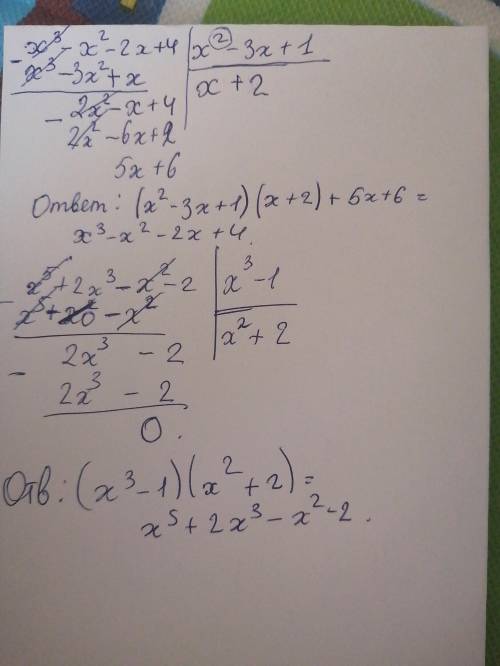 - x³ - x² - 2x + 4 | x² - 3x + 1
x³ - 3x² + x | x + 2
- 2x² - x + 4
2x² - 6x + 2
5x + 6
Ответ: (x² - 3x + 1)(x + 2) + 5x + 6 =
x³ - x² - 2x + 4.
- x⁵ + 2x³ - x² - 2 | x³ - 1
x⁵ - x² | x² + 2
- 2x³ - 2
2x³ - 2
0.
Отв: (x³ - 1)(x² + 2) =
x⁵ + 2x³ - x² - 2.